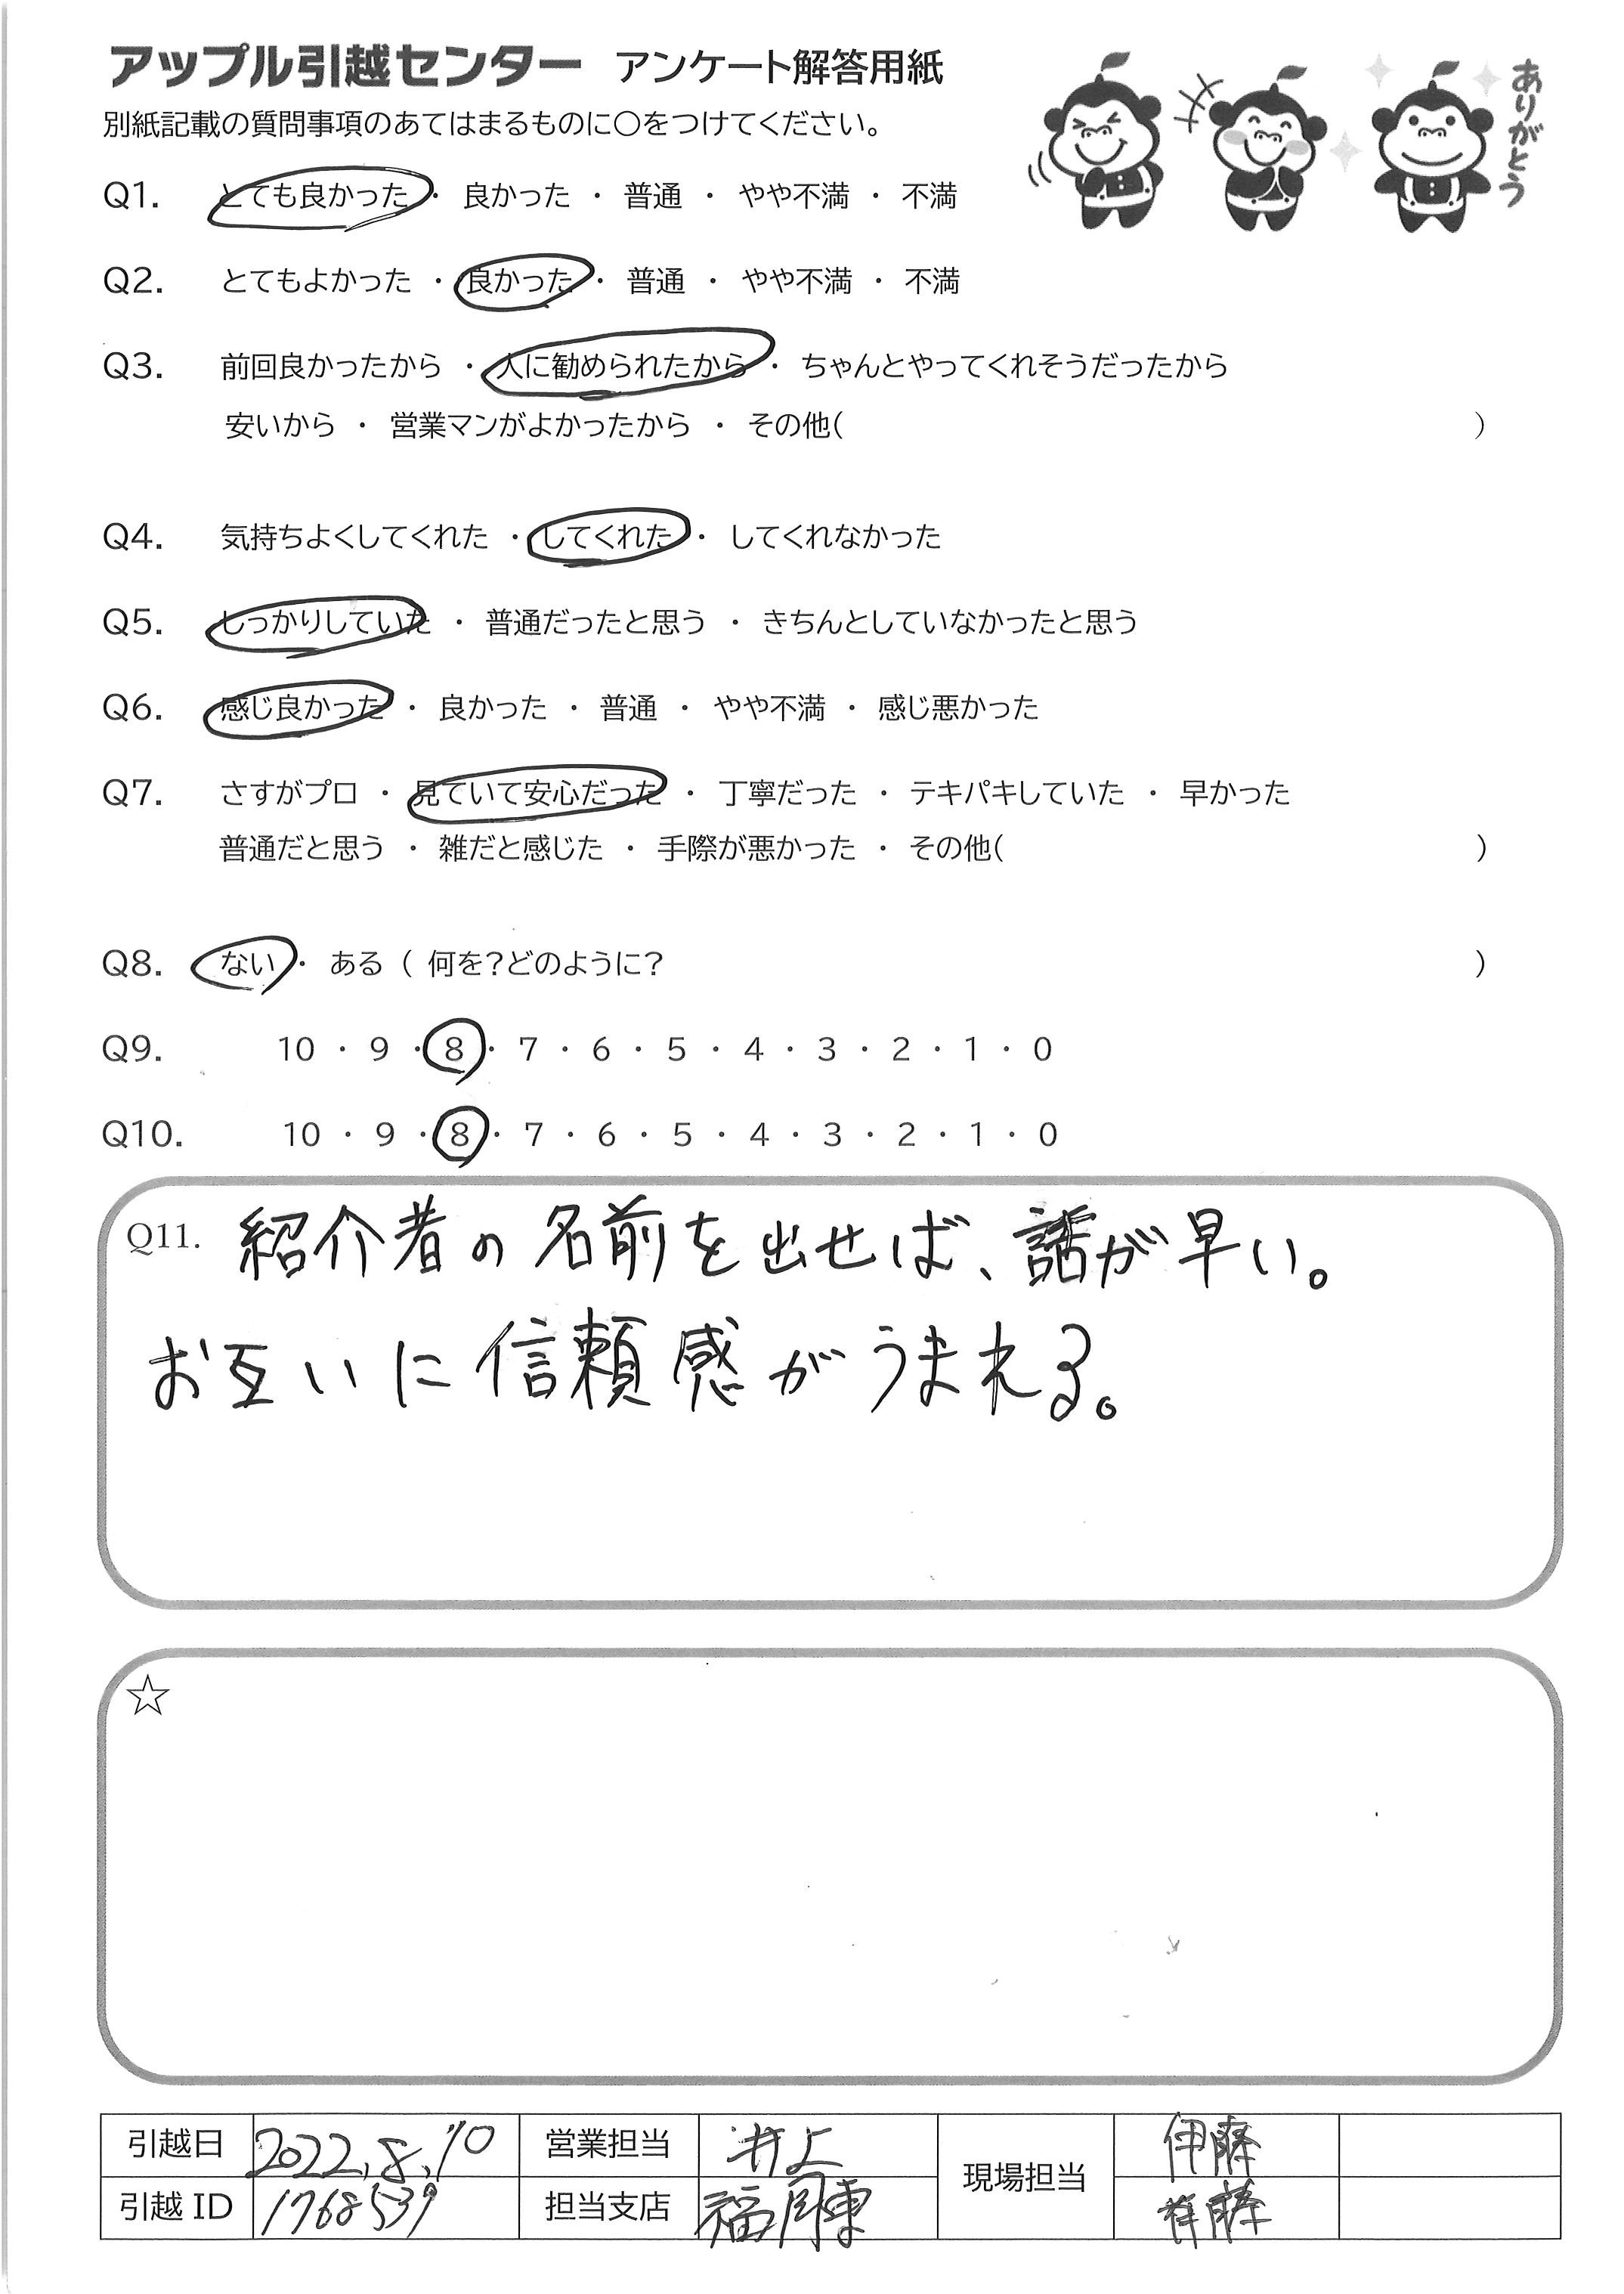 アップル引越センター アンケート解答用紙
別紙記載の質問事項のあてはまるものに〇をつけてください。
ありがとう
Q1. とても良かった ・ 良かった ・ 普通 ・ やや不満 ・ 不満
Q2. とてもよかった ・ 良かった ・ 普通 ・ やや不満 ・ 不満
Q3. 前回良かったから ・ 人に勧められたから ・ ちゃんとやってくれそうだったから
安いから ・ 営業マンがよかったから ・ その他( )
Q4. 気持ちよくしてくれた ・ してくれた ・ してくれなかった
Q5. しっかりしていた ・ 普通だったと思う ・ きちんとしていなかったと思う
Q6. 感じ良かった ・ 良かった ・ 普通 ・ やや不満 ・ 感じ悪かった
Q7. さすがプロ ・ 見ていて安心だった ・ 丁寧だった ・ テキパキしていた ・ 早かった
普通だと思う ・ 雑だと感じた ・ 手際が悪かった ・ その他( )
Q8. ない ・ ある ( 何を?どのように? )
Q9. 10 ・ 9 ・ 8 ・ 7 ・ 6 ・ 5 ・ 4 ・ 3 ・ 2 ・ 1 ・ 0
Q10. 10 ・ 9 ・ 8 ・ 7 ・ 6 ・ 5 ・ 4 ・ 3 ・ 2 ・ 1 ・ 0
Q11. 紹介者の名前を出せば、話が早い。
お互いに信頼感がうまれる。
☆
引越日 2022.8.10 営業担当 井上 現場担当 伊藤
引越 ID 1768539 担当支店 福岡東